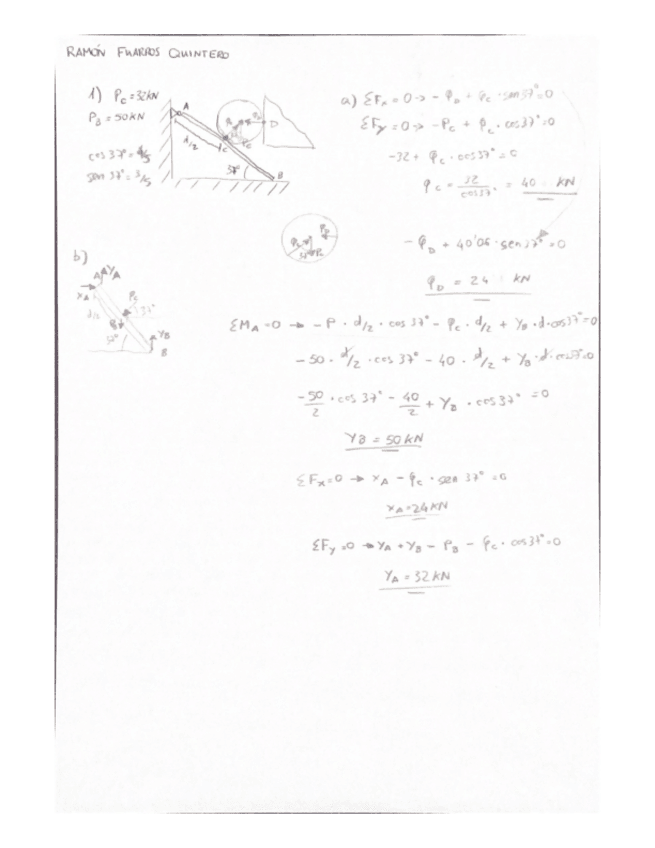 RAMÓN FUARROS QUINTERO
1) PC = 32KN
PB = 50KN
cos 37° = 4/5
sen 37° = 3/5
A
d/2
C
D
37°
B
a) ΣFx = 0 → - φD + φC · sen 37° = 0
ΣFy = 0 → - PC + φC · cos 37° = 0
-32 + φC · cos 37° = 0
φC = 32/cos 37° = 40 KN
- φD + 40'06 · sen 37° = 0
φD = 24 KN
b)
A YA
XA
d/2
φC
37°
PB
YB
B
ΣMA = 0 → - P · d/2 · cos 37° - φC · d/2 + YB · d · cos 37° = 0
- 50 · d/2 · cos 37° - 40 · d/2 + YB · d · cos 37° = 0
- 50/2 · cos 37° - 40/2 + YB · cos 37° = 0
YB = 50 KN
ΣFx = 0 → XA - φC · sen 37° = 0
XA = 24 KN
ΣFy = 0 → YA + YB - PB - φC · cos 37° = 0
YA = 32 KN